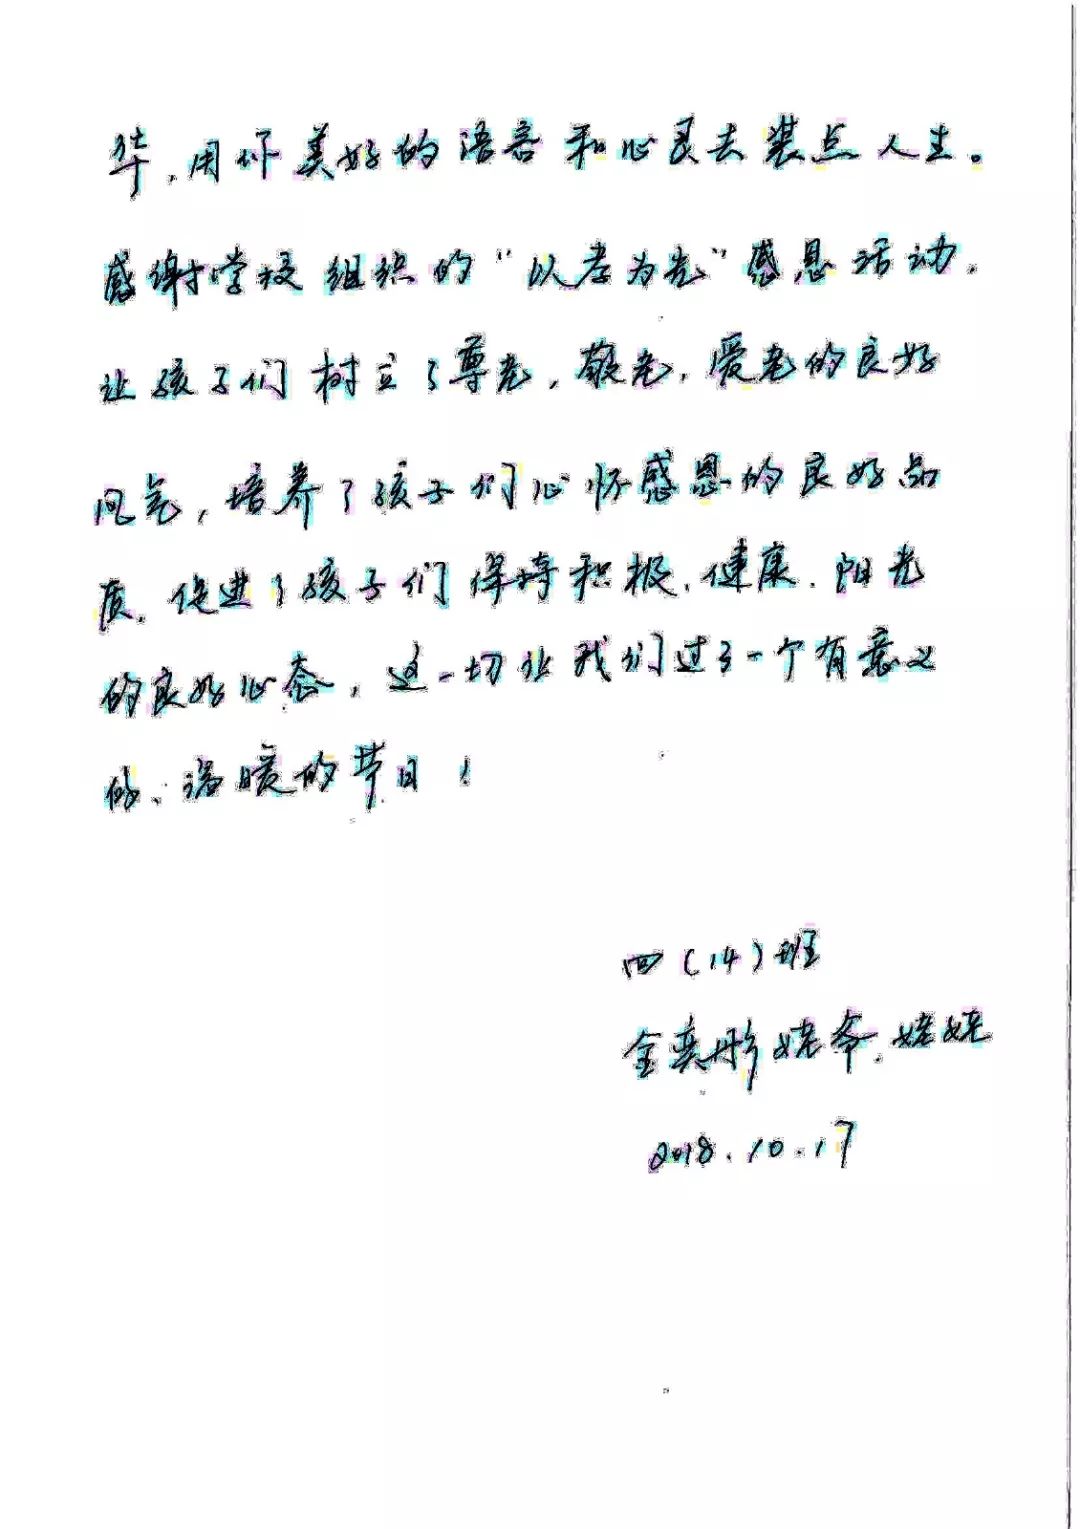 华,用你美好的语言和心灵去装点人生。
感谢学校组织的“以孝为先”感恩活动,
让孩子们树立了尊老,敬老,爱老的良好
风气,培养了孩子们心怀感恩的良好品
质,促进了孩子们保持积极、健康、阳光
的良好心态,这一切让我们过了一个有意义
的、温暖的节日!
四(14)班
金奕彤姥爷、姥姥
2018.10.17